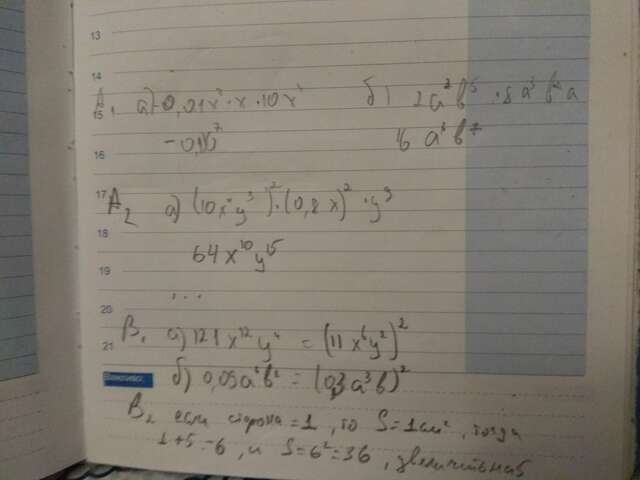 13
14
15
A₁ а) -0,01x⁴·x·10x² б) 2a²b⁵·8a³b²a
16
-0,1x⁷ 16a⁶b⁷
17
A₂ а) (10x⁴y³)²·(0,8x)²·y⁹
18
64x¹⁰y¹⁵
19
...
20
B₁ а) 121x¹²y⁴ = (11x⁶y²)²
21
б) 0,09a⁶b² = (0,3a³b)²
B₂ если сторона = 1, то S = 1см², тогда
1+5=6, и S=6²=36, увеличить на 5